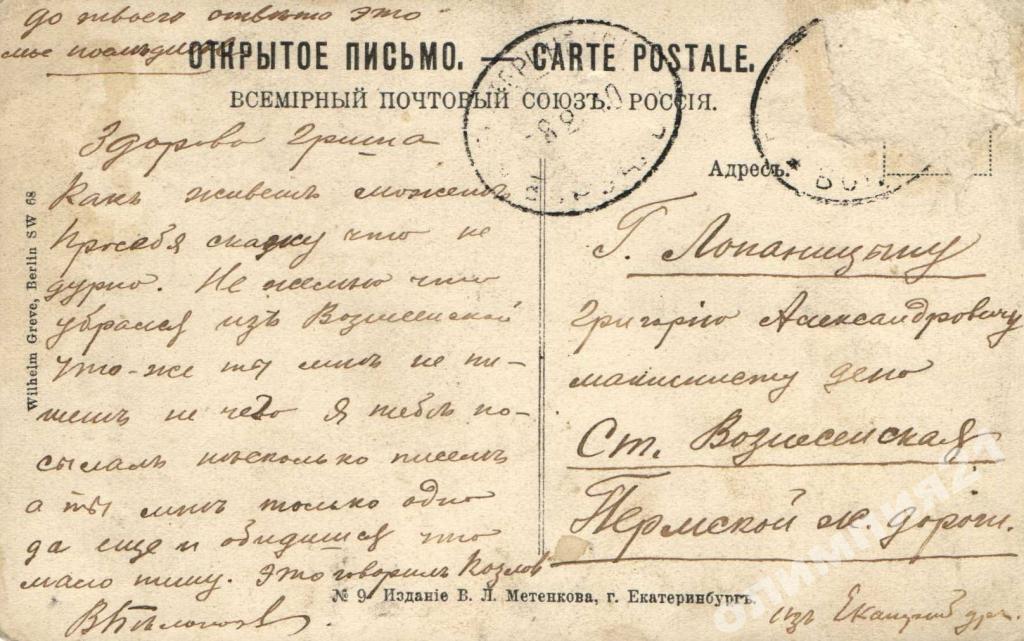 до твоего ответа это
мое последнее
ОТКРЫТОЕ ПИСЬМО. — CARTE POSTALE.
ВСЕМІРНЫЙ ПОЧТОВЫЙ СОЮЗЪ. РОССІЯ.
Здорово Гриша
Какъ живешь можешь
Про себя скажу что не
дурно. Не жалею что
убрался изъ Вознесенской
Что-же ты мнѣ не пи-
шешь не чего Я тебѣ по-
сылалъ нѣсколько писемъ
а ты мнѣ только одно
да еще и обидился что
мало пишу. Это говорилъ Козлов
Адресъ.
Г. Лопаницыну
Григорію Александровичу
машинисту депо
Ст. Вознесенская
Пермской ж. дороги.
изъ
Wilhelm Greve, Berlin SW 68
№ 9 Изданіе В. Л. Метенкова, г. Екатеринбургъ.
ОЛИМПИЯ21